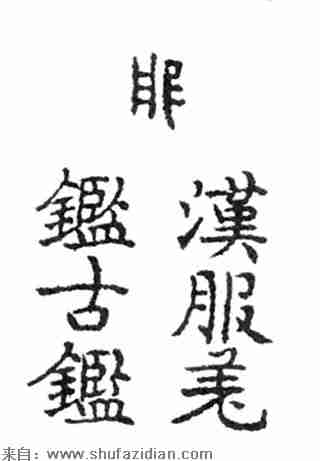 漢服羌
鑑古鑑
来自：www.shufazidian.com